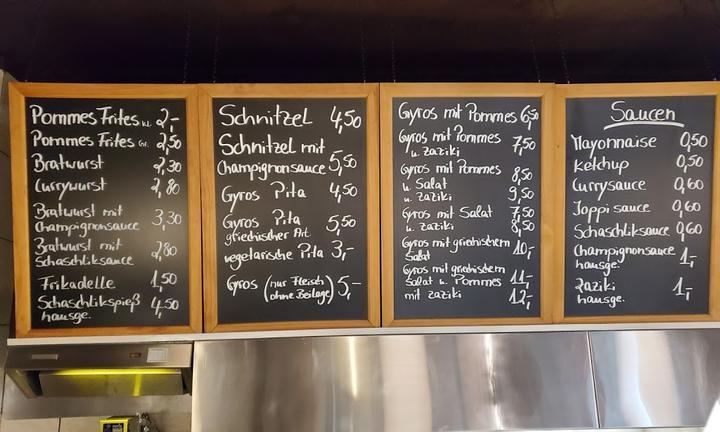 Pommes Frites kl. 2,-
Pommes Frites Gr. 2,50
Bratwurst 2,30
Currywurst 2,80
Bratwurst mit
Champignonsauce 3,30
Bratwurst mit
Schaschliksauce 2,80
Frikadelle 1,50
Schaschlikspieß 4,50
hausge.
Schnitzel 4,50
Schnitzel mit
Champignonsauce 5,50
Gyros Pita 4,50
Gyros Pita 5,50
griechischer Art
vegetarische Pita 3,-
Gyros (nur Fleisch 5,-
ohne Beilage)
Gyros mit Pommes 6,50
Gyros mit Pommes 7,50
u. zaziki
Gyros mit Pommes
u. Salat 8,50
u. zaziki 9,50
Gyros mit Salat 7,50
u. zaziki 8,50
Gyros mit griechischem 10,-
Salat
Gyros mit griechischem
Salat u. Pommes 11,-
mit zaziki 12,-
Saucen
Mayonnaise 0,50
Ketchup 0,50
Currysauce 0,60
Joppi sauce 0,60
Schaschliksauce 0,60
Champignonsauce 1,-
hausge.
Zaziki 1,-
hausge.